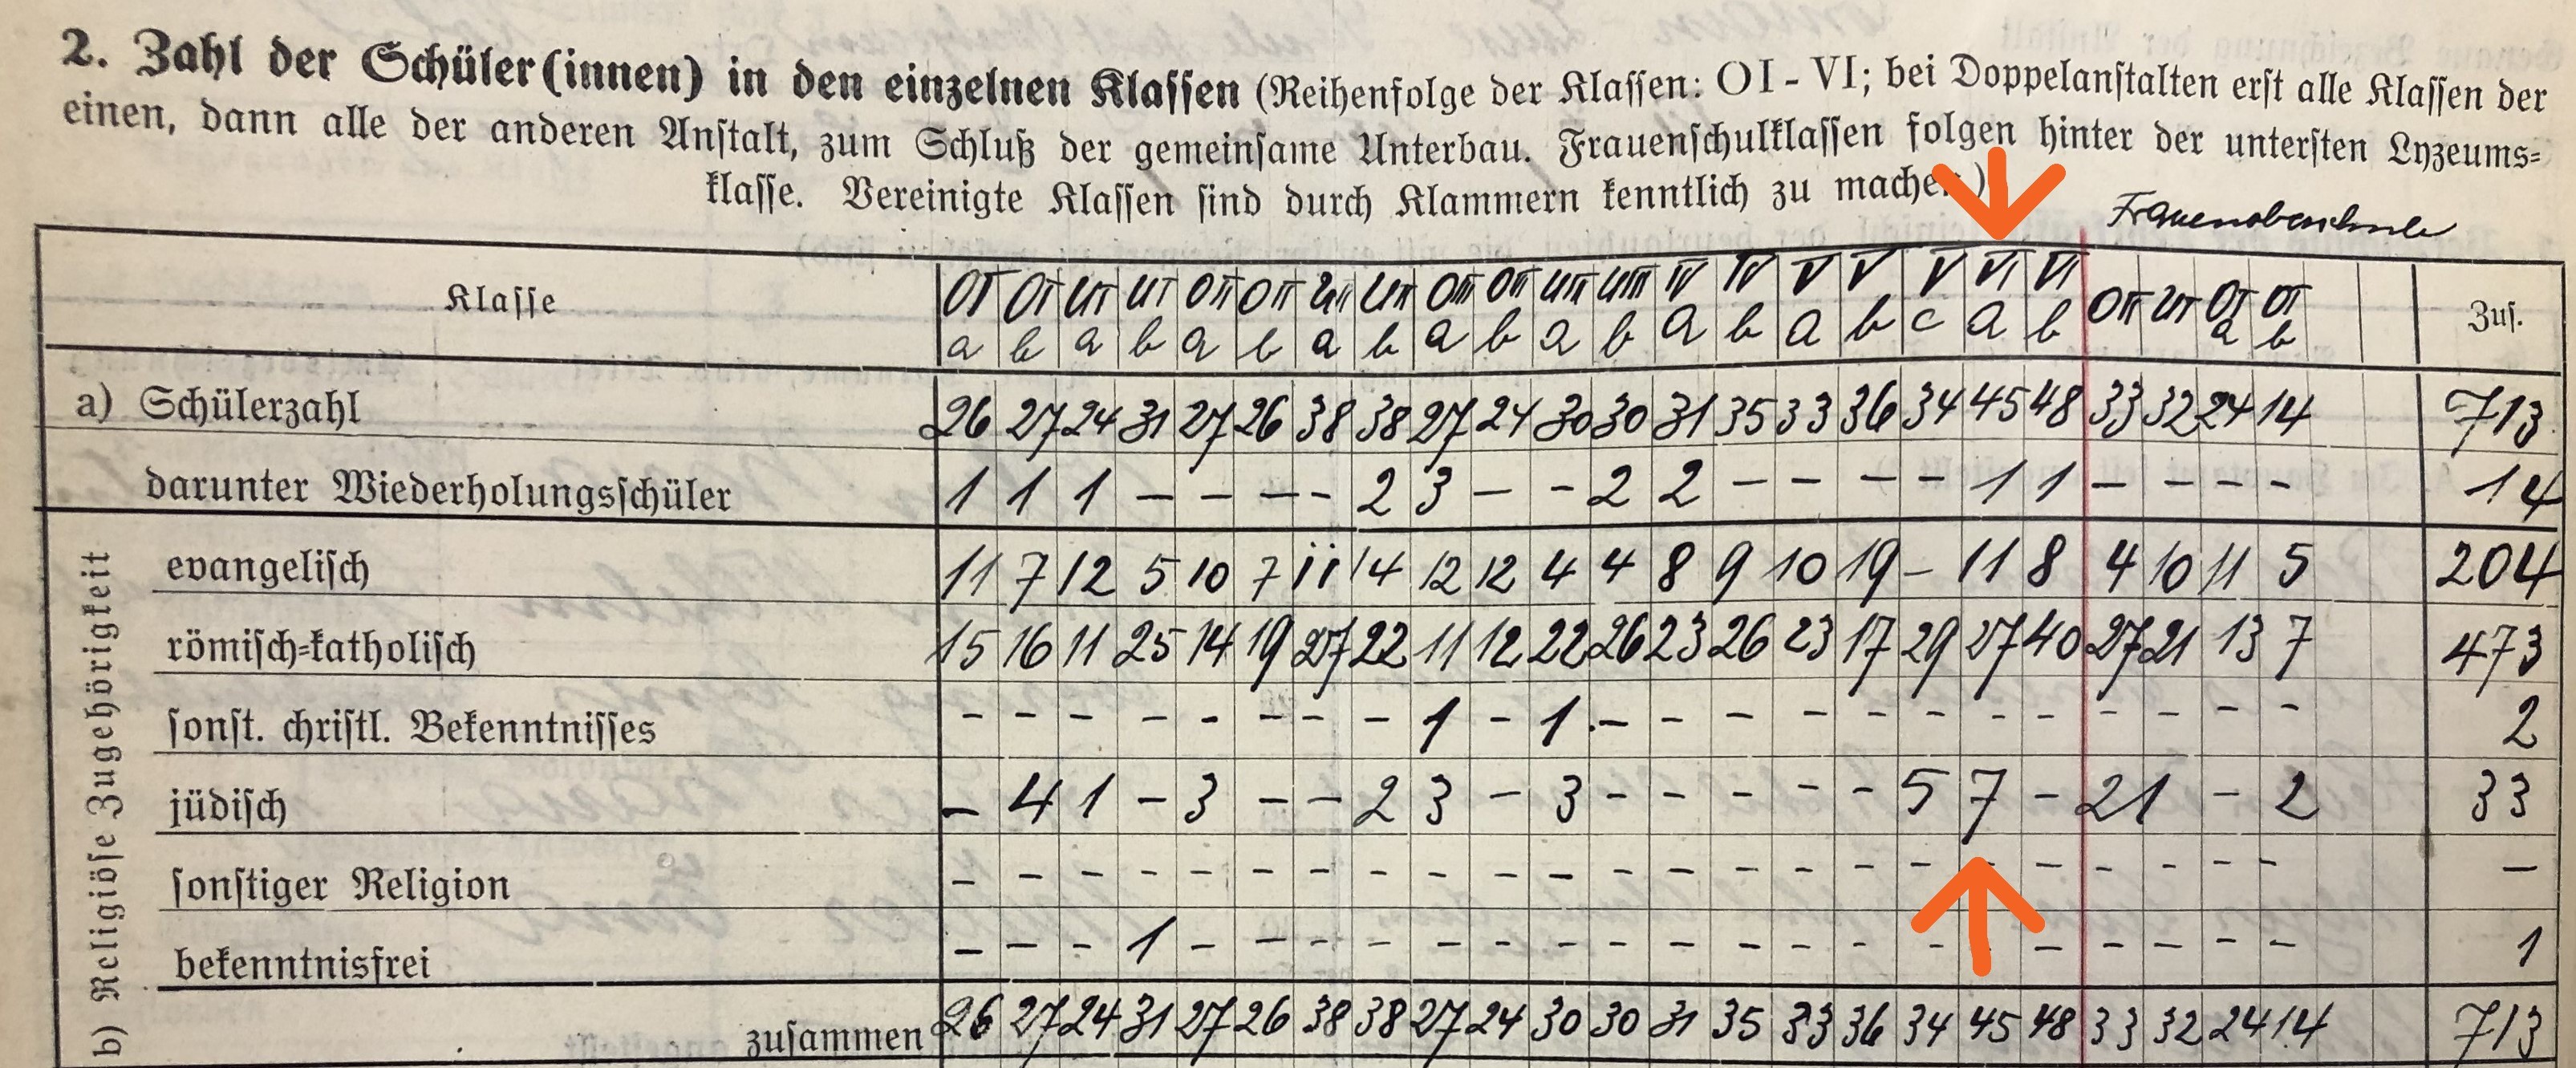 2. Zahl der Schüler(innen) in den einzelnen Klassen (Reihenfolge der Klassen: OI - VI; bei Doppelanstalten erst alle Klassen der
einen, dann alle der anderen Anstalt, zum Schluß der gemeinsame Unterbau. Frauenschulklassen folgen hinter der untersten Lyzeums=
klasse. Vereinigte Klassen sind durch Klammern kenntlich zu machen.)
Frauenoberschule
Klasse OI a OI b UI a UI b OII a OII b UII a UII b OIII a OIII b UIII a UIII b IV a IV b V a V b V c VI a VI b OII UI OI a OI b Zus.
a) Schülerzahl 26 27 24 31 27 26 38 38 27 24 30 30 31 35 33 36 34 45 48 33 32 24 14 713
darunter Wiederholungsschüler 1 1 1 - - - - 2 3 - - 2 2 - - - - 1 1 - - - - 14
b) Religiöse Zugehörigkeit
evangelisch 11 7 12 5 10 7 11 14 12 12 4 4 8 9 10 19 - 11 8 4 10 11 5 204
römisch=katholisch 15 16 11 25 14 19 27 22 11 12 22 26 23 26 23 17 29 27 40 27 21 13 7 473
sonst. christl. Bekenntnisses - - - - - - - - 1 - 1 - - - - - - - - - - - - 2
jüdisch - 4 1 - 3 - - 2 3 - 3 - - - - - 5 7 - 2 1 - 2 33
sonstiger Religion - - - - - - - - - - - - - - - - - - - - - - - -
bekenntnisfrei - - - 1 - - - - - - - - - - - - - - - - - - - 1
zusammen 26 27 24 31 27 26 38 38 27 24 30 30 31 35 33 36 34 45 48 33 32 24 14 713